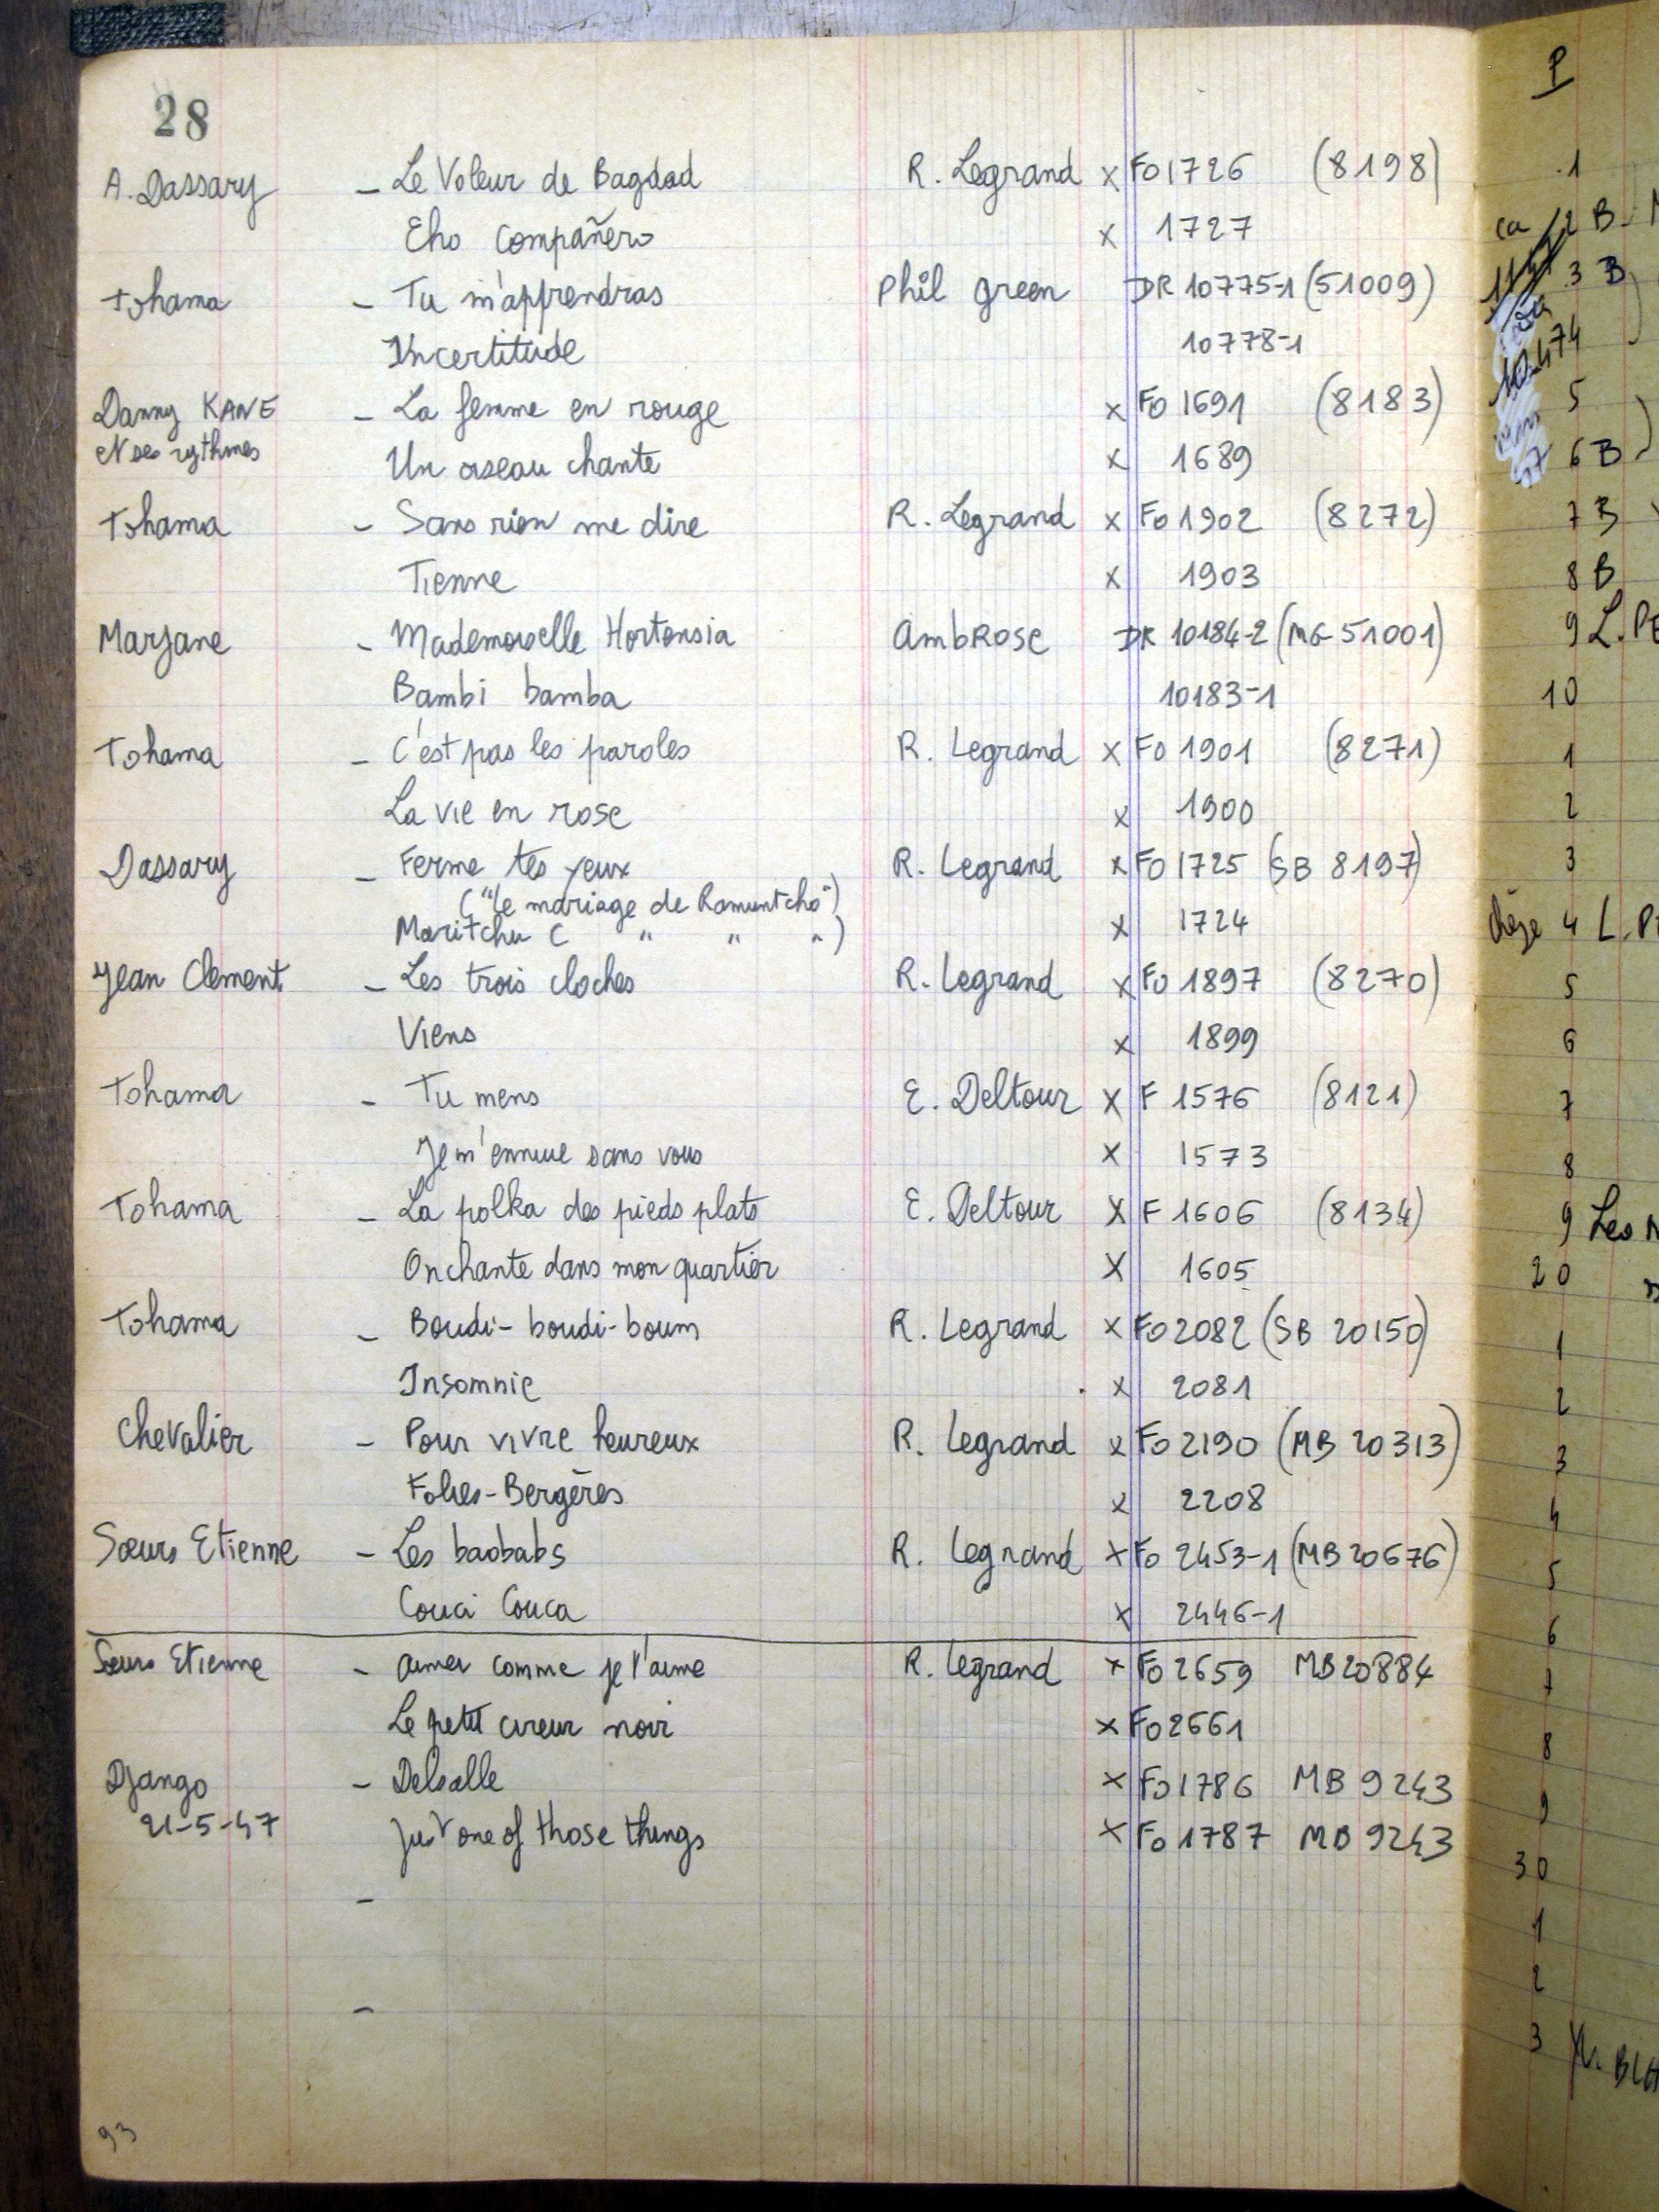 28
A. Dassary - Le Voleur de Bagdad R. Legrand x Fo 1726 (8198)
Eho Compañero x 1727
Tohama - Tu m'apprendras Phil Green DR 10775-1 (51009)
Incertitude 10778-1
Danny KANE - La femme en rouge x Fo 1691 (8183)
et ses rythmes Un oiseau chante x 1689
Tohama - Sans rien me dire R. Legrand x Fo 1902 (8272)
Tienne x 1903
Marjane - Mademoiselle Hortensia AmbRose DR 10184-2 (MG-51001)
Bambi bamba 10183-1
Tohama - C'est pas les paroles R. Legrand x Fo 1901 (8271)
La vie en rose x 1900
Dassary - Ferme tes yeux R. Legrand x Fo 1725 (SB 8197)
("Le mariage de Ramuntcho")
Maritchu ( " " " ) x 1724
Jean Clement - Les trois cloches R. Legrand x Fo 1897 (8270)
Viens x 1899
Tohama - Tu mens E. Deltour x F 1576 (8121)
Je m'ennuie sans vous x 1573
Tohama - La polka des pieds plats E. Deltour x F 1606 (8134)
On chante dans mon quartier x 1605
Tohama - Boudi-boudi-boum R. Legrand x Fo 2082 (SB 20150)
Insomnie x 2081
Chevalier - Pour vivre heureux R. Legrand x Fo 2190 (MB 20313)
Folies-Bergères x 2208
Sœurs Etienne - Les baobabs R. Legrand x Fo 2453-1 (MB 20676)
Couci Couca x 2446-1
Sœurs Etienne - Aimer comme je t'aime R. Legrand x Fo 2659 MB 20884
Le petit cireur noir x Fo 2661
Django - Delsalle x Fo 1786 MB 9243
21-5-47 Just one of those things x Fo 1787 MB 9243
-
-
93
P
1
ca 2 B
3 B
4
5
6 B
7 B
8 B
9 L. PE
10
1
2
3
4 L. P
5
6
7
8
9 Les
20
1
2
3
4
5
6
7
8
9
30
1
2
3